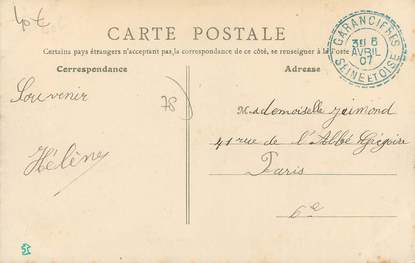 40 €
CARTE POSTALE
Certains pays étrangers n'acceptant pas la correspondance de ce côté, se renseigner à la Poste
GARANCIÈRES
5
AVRIL
07
SEINE ET OISE
Correspondance
Adresse
78
Souvenir
Hélène
Mademoiselle Jaimond
41 rue de l'Abbé Grégoire
Paris
6e